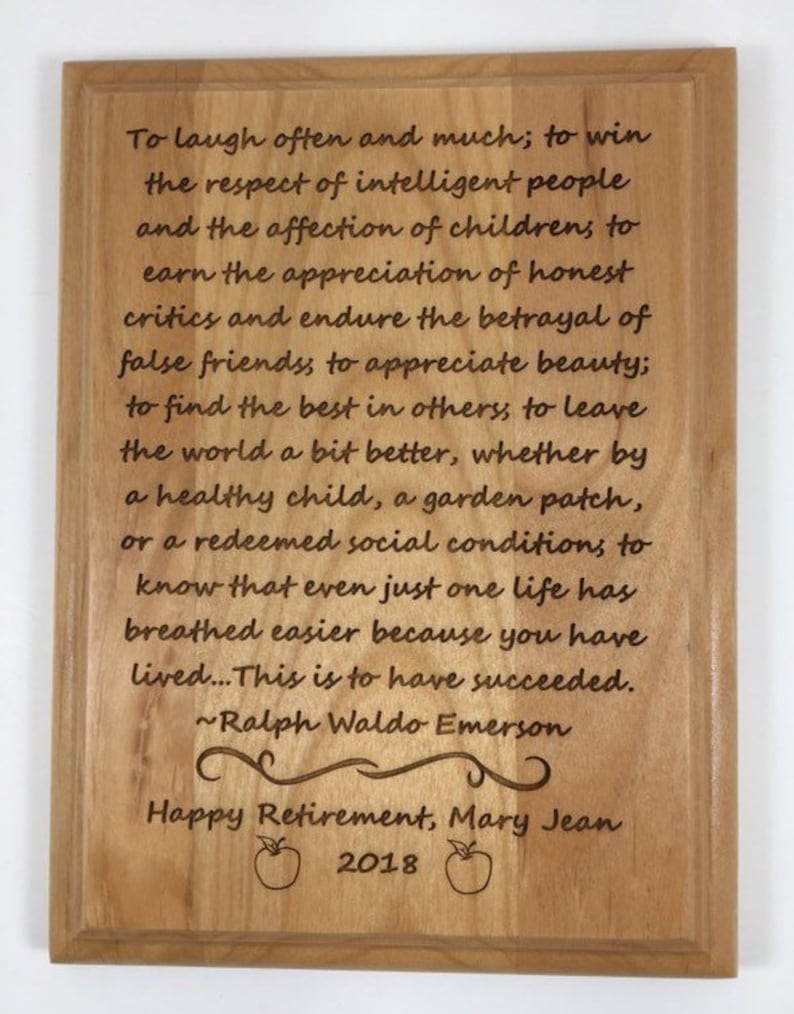 To laugh often and much; to win
the respect of intelligent people
and the affection of children; to
earn the appreciation of honest
critics and endure the betrayal of
false friends; to appreciate beauty;
to find the best in others; to leave
the world a bit better, whether by
a healthy child, a garden patch,
or a redeemed social condition; to
know that even just one life has
breathed easier because you have
lived...This is to have succeeded.
~Ralph Waldo Emerson
Happy Retirement, Mary Jean
2018